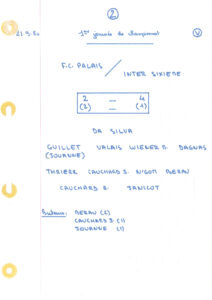 2
1ère journée de championnat
V
F.C. PALAIS / INTER SIXIEME
2 — 4
(2) — (1)
DA SILVA
GUILLET VALAIS WIENER P. DAGNAS
(JOURNNE)
THRIERR CAUCHARD S. N'GOM DERAU
CAUCHARD R. JANICOT
Buteurs: DERAU (2)
CAUCHARD S. (1)
JOURNNE (1)